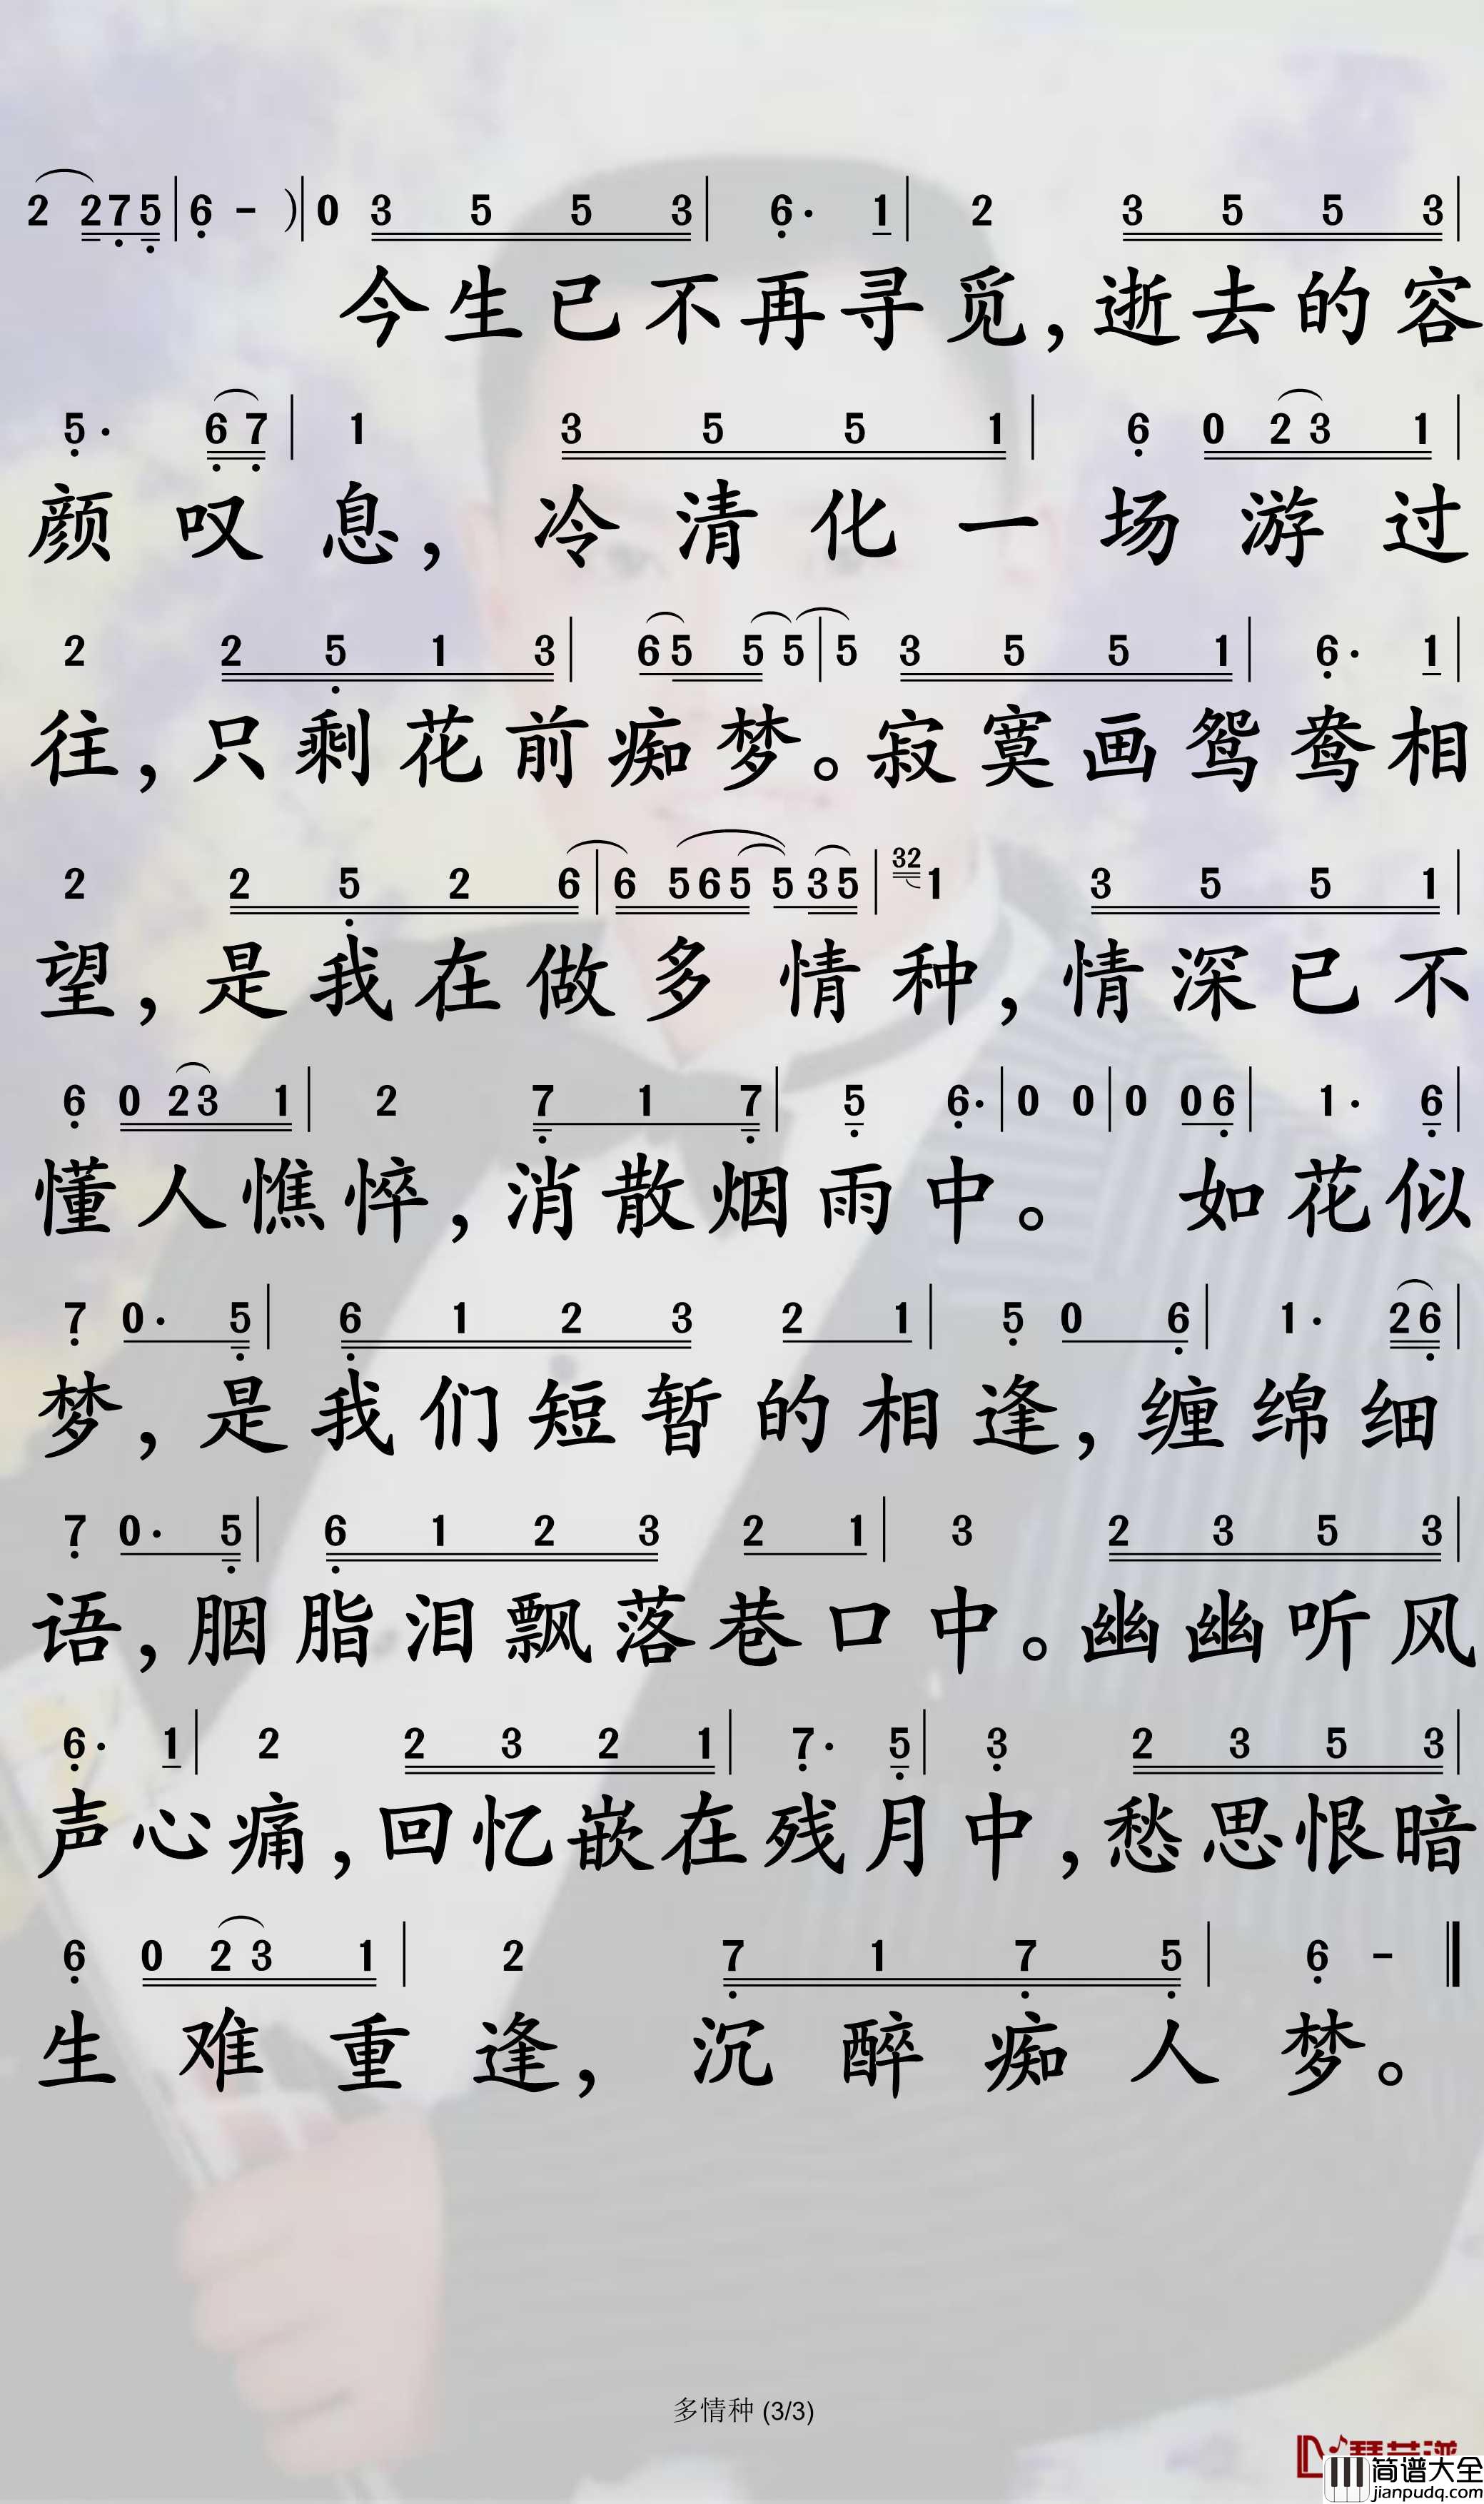 2 2 7 5 | 6 - ) | 0 3 5 5 3 | 6· 1 | 2 3 5 5 3 |
今生已不再寻觅，逝去的容
5· 6 7 | 1 3 5 5 1 | 6 0 2 3 1 |
颜叹息，冷清化一场游过
2 2 5 1 3 | 6 5 5 5 | 5 3 5 5 1 | 6· 1 |
往，只剩花前痴梦。寂寞画鸳鸯相
2 2 5 2 6 | 6 5 6 5 5 3 5 | 32 1 3 5 5 1 |
望，是我在做多情种，情深已不
6 0 2 3 1 | 2 7 1 7 | 5 6· | 0 0 | 0 0 6 | 1· 6 |
懂人憔悴，消散烟雨中。如花似
7 0· 5 | 6 1 2 3 2 1 | 5 0 6 | 1· 2 6 |
梦，是我们短暂的相逢，缠绵细
7 0· 5 | 6 1 2 3 2 1 | 3 2 3 5 3 |
语，胭脂泪飘落巷口中。幽幽听风
6· 1 | 2 2 3 2 1 | 7· 5 | 3 2 3 5 3 |
声心痛，回忆嵌在残月中，愁思恨暗
6 0 2 3 1 | 2 7 1 7 5 | 6 - ‖
生难重逢，沉醉痴人梦。
多情种 (3/3)
简谱大全
jianpudq.com